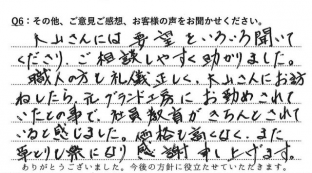 Q6：その他、ご意見ご感想、お客様の声をお聞かせください。
大山さんには要望といろいろ聞いて
くださり、ご相談しやすく助かりました。
職人の方も礼儀正しく、大山さんにお訪
ねしたら、元グランド工房にお勤めされて
いたとの事で、社員教育がきちんとされて
いると感じました。価格も高くなく、また
草とりも楽になり感謝申し上げます。
ありがとうございました。今後の方針に役立たせていただきます。